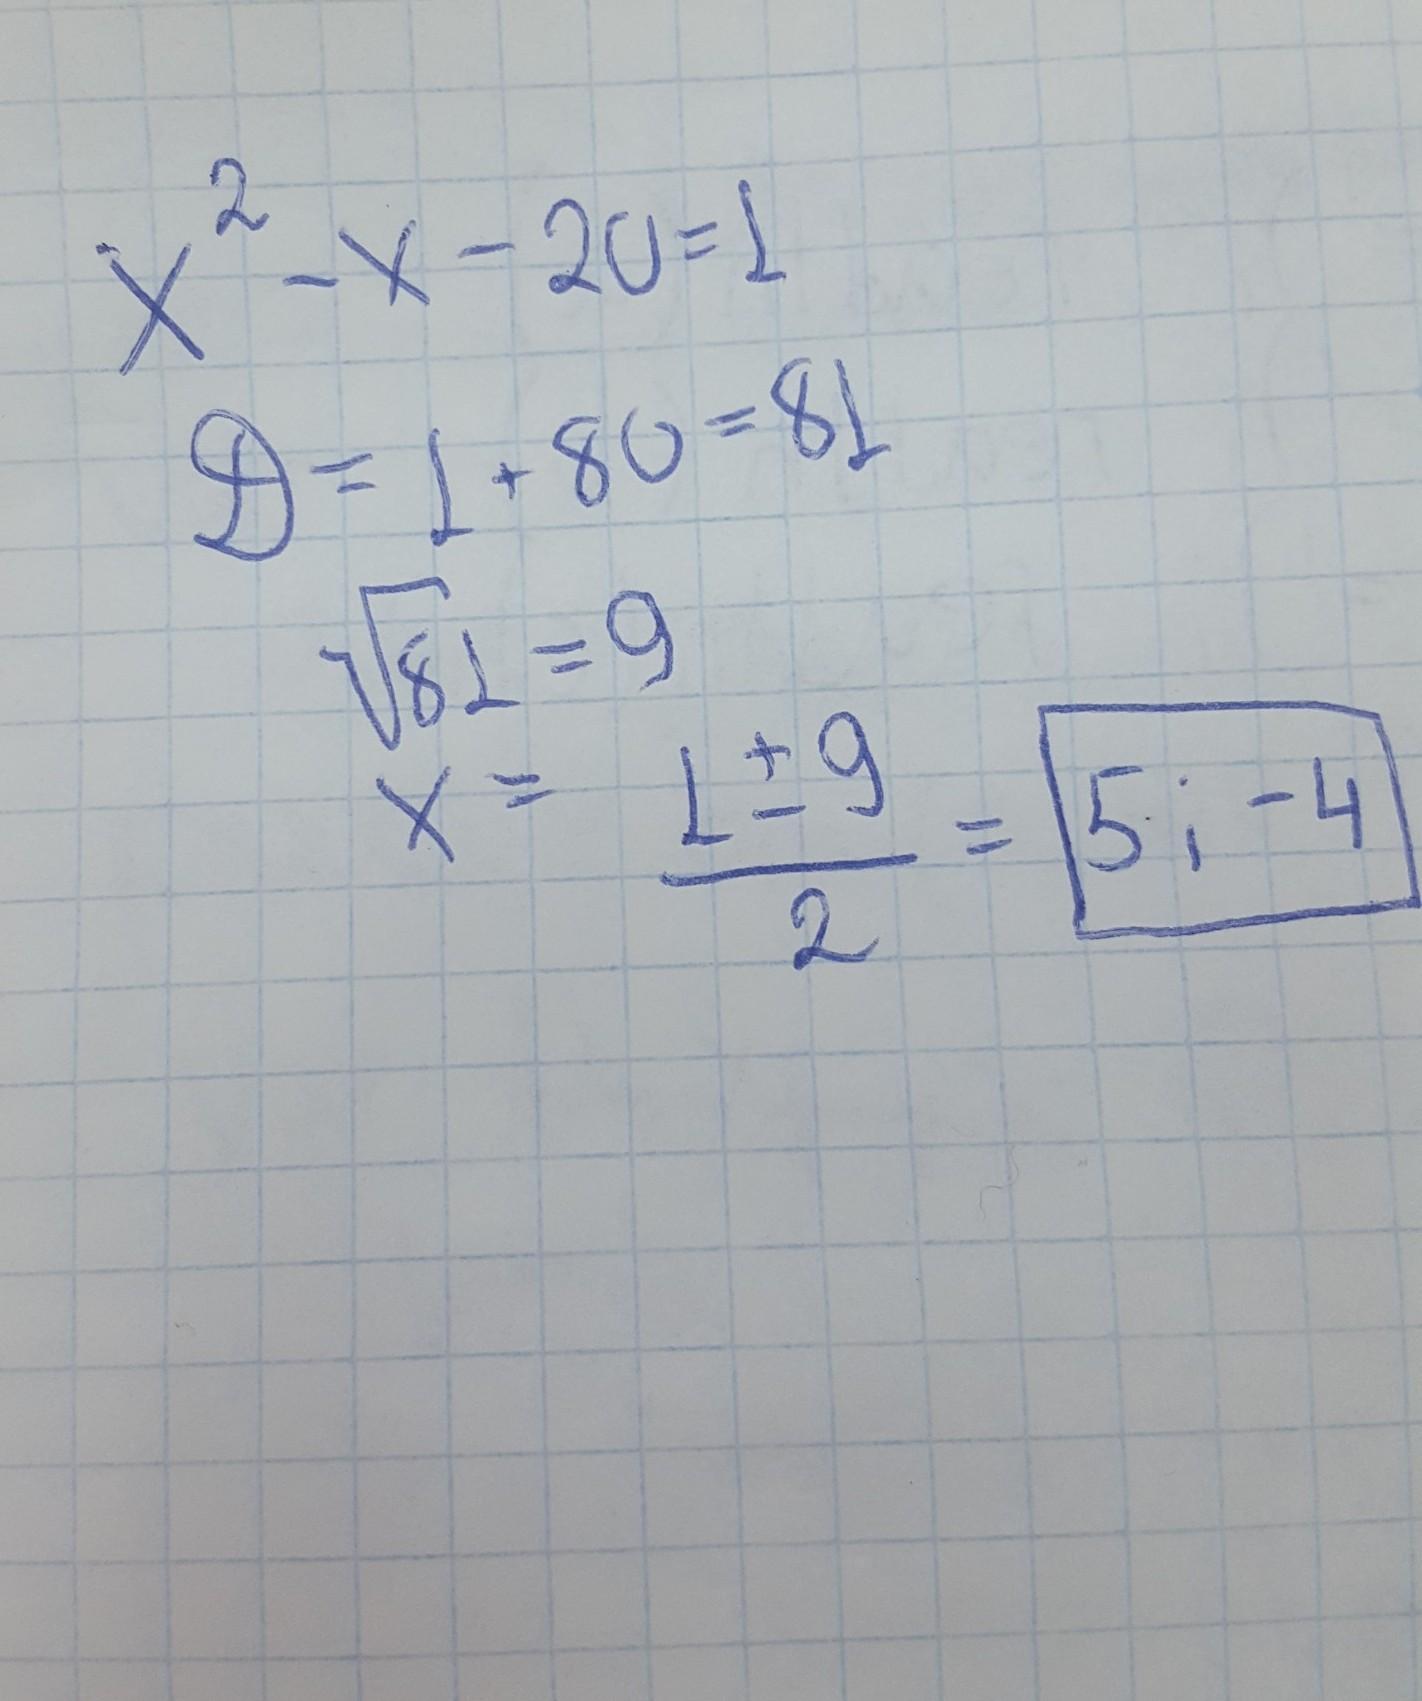 x² - x - 20 = 1
D = 1 + 80 = 81
√81 = 9
x = (1 ± 9)/2 = 5; -4